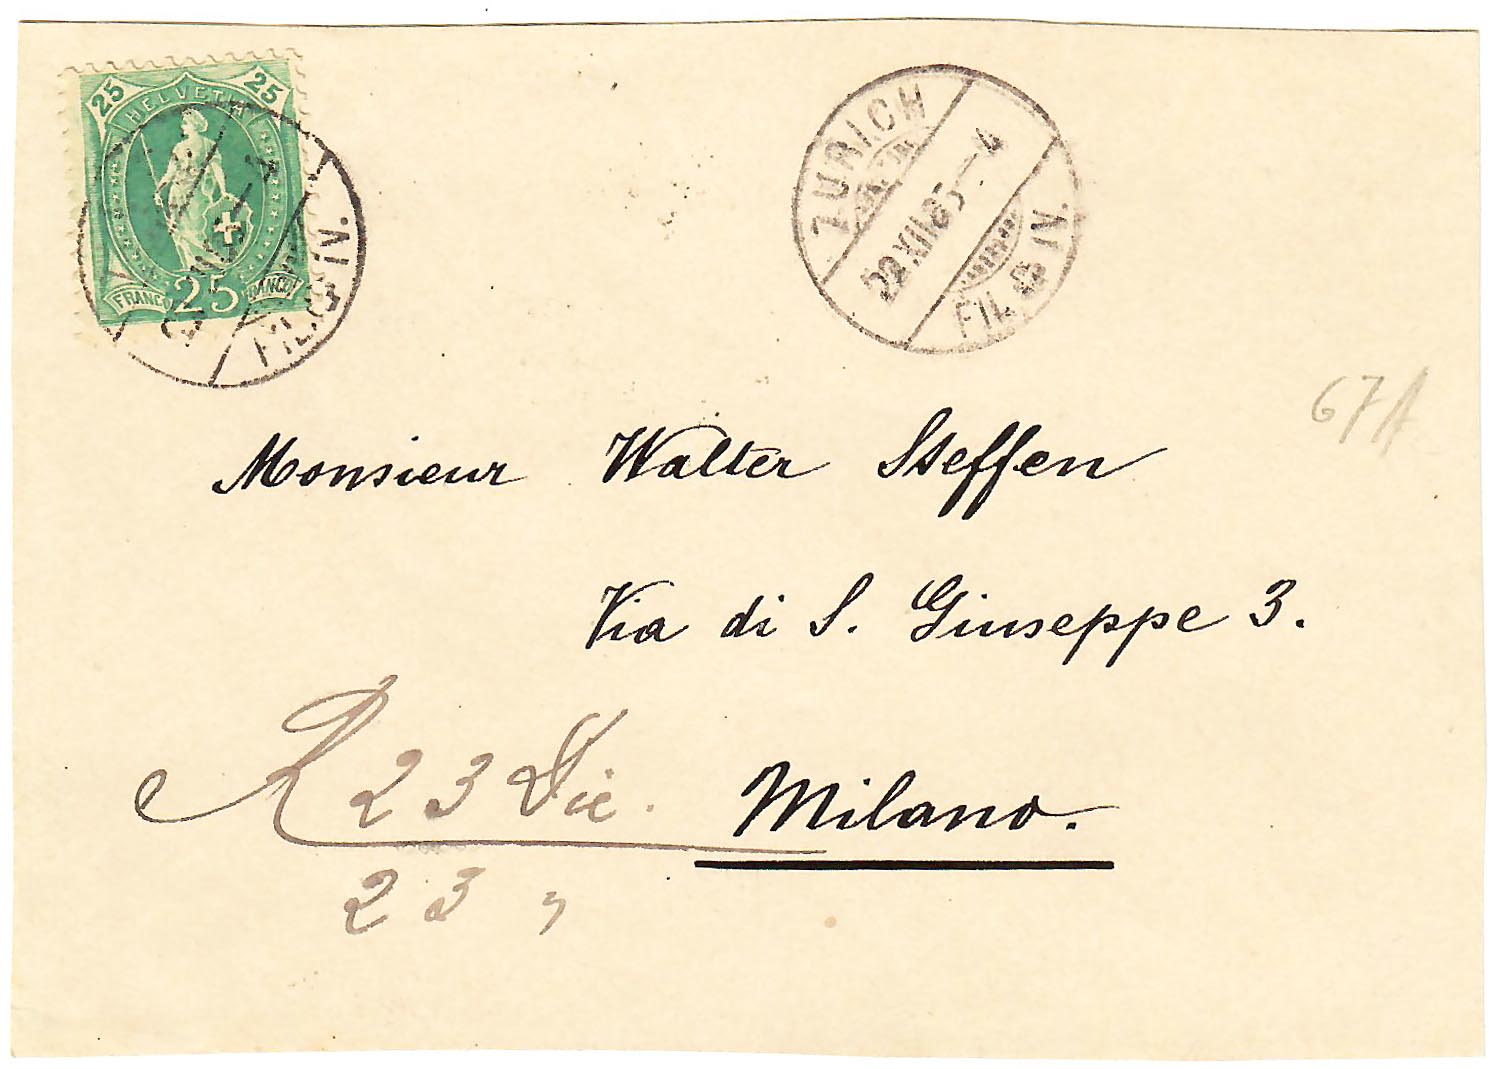 25 HELVETIA 25
FRANCO 25 FRANCO
FIL. IV.
ZÜRICH
22.XII.85.–4
FIL. IV.
67A
Monsieur Walter Steffen
Via di S. Giuseppe 3.
R 23 Dic.
Milano.
23 "